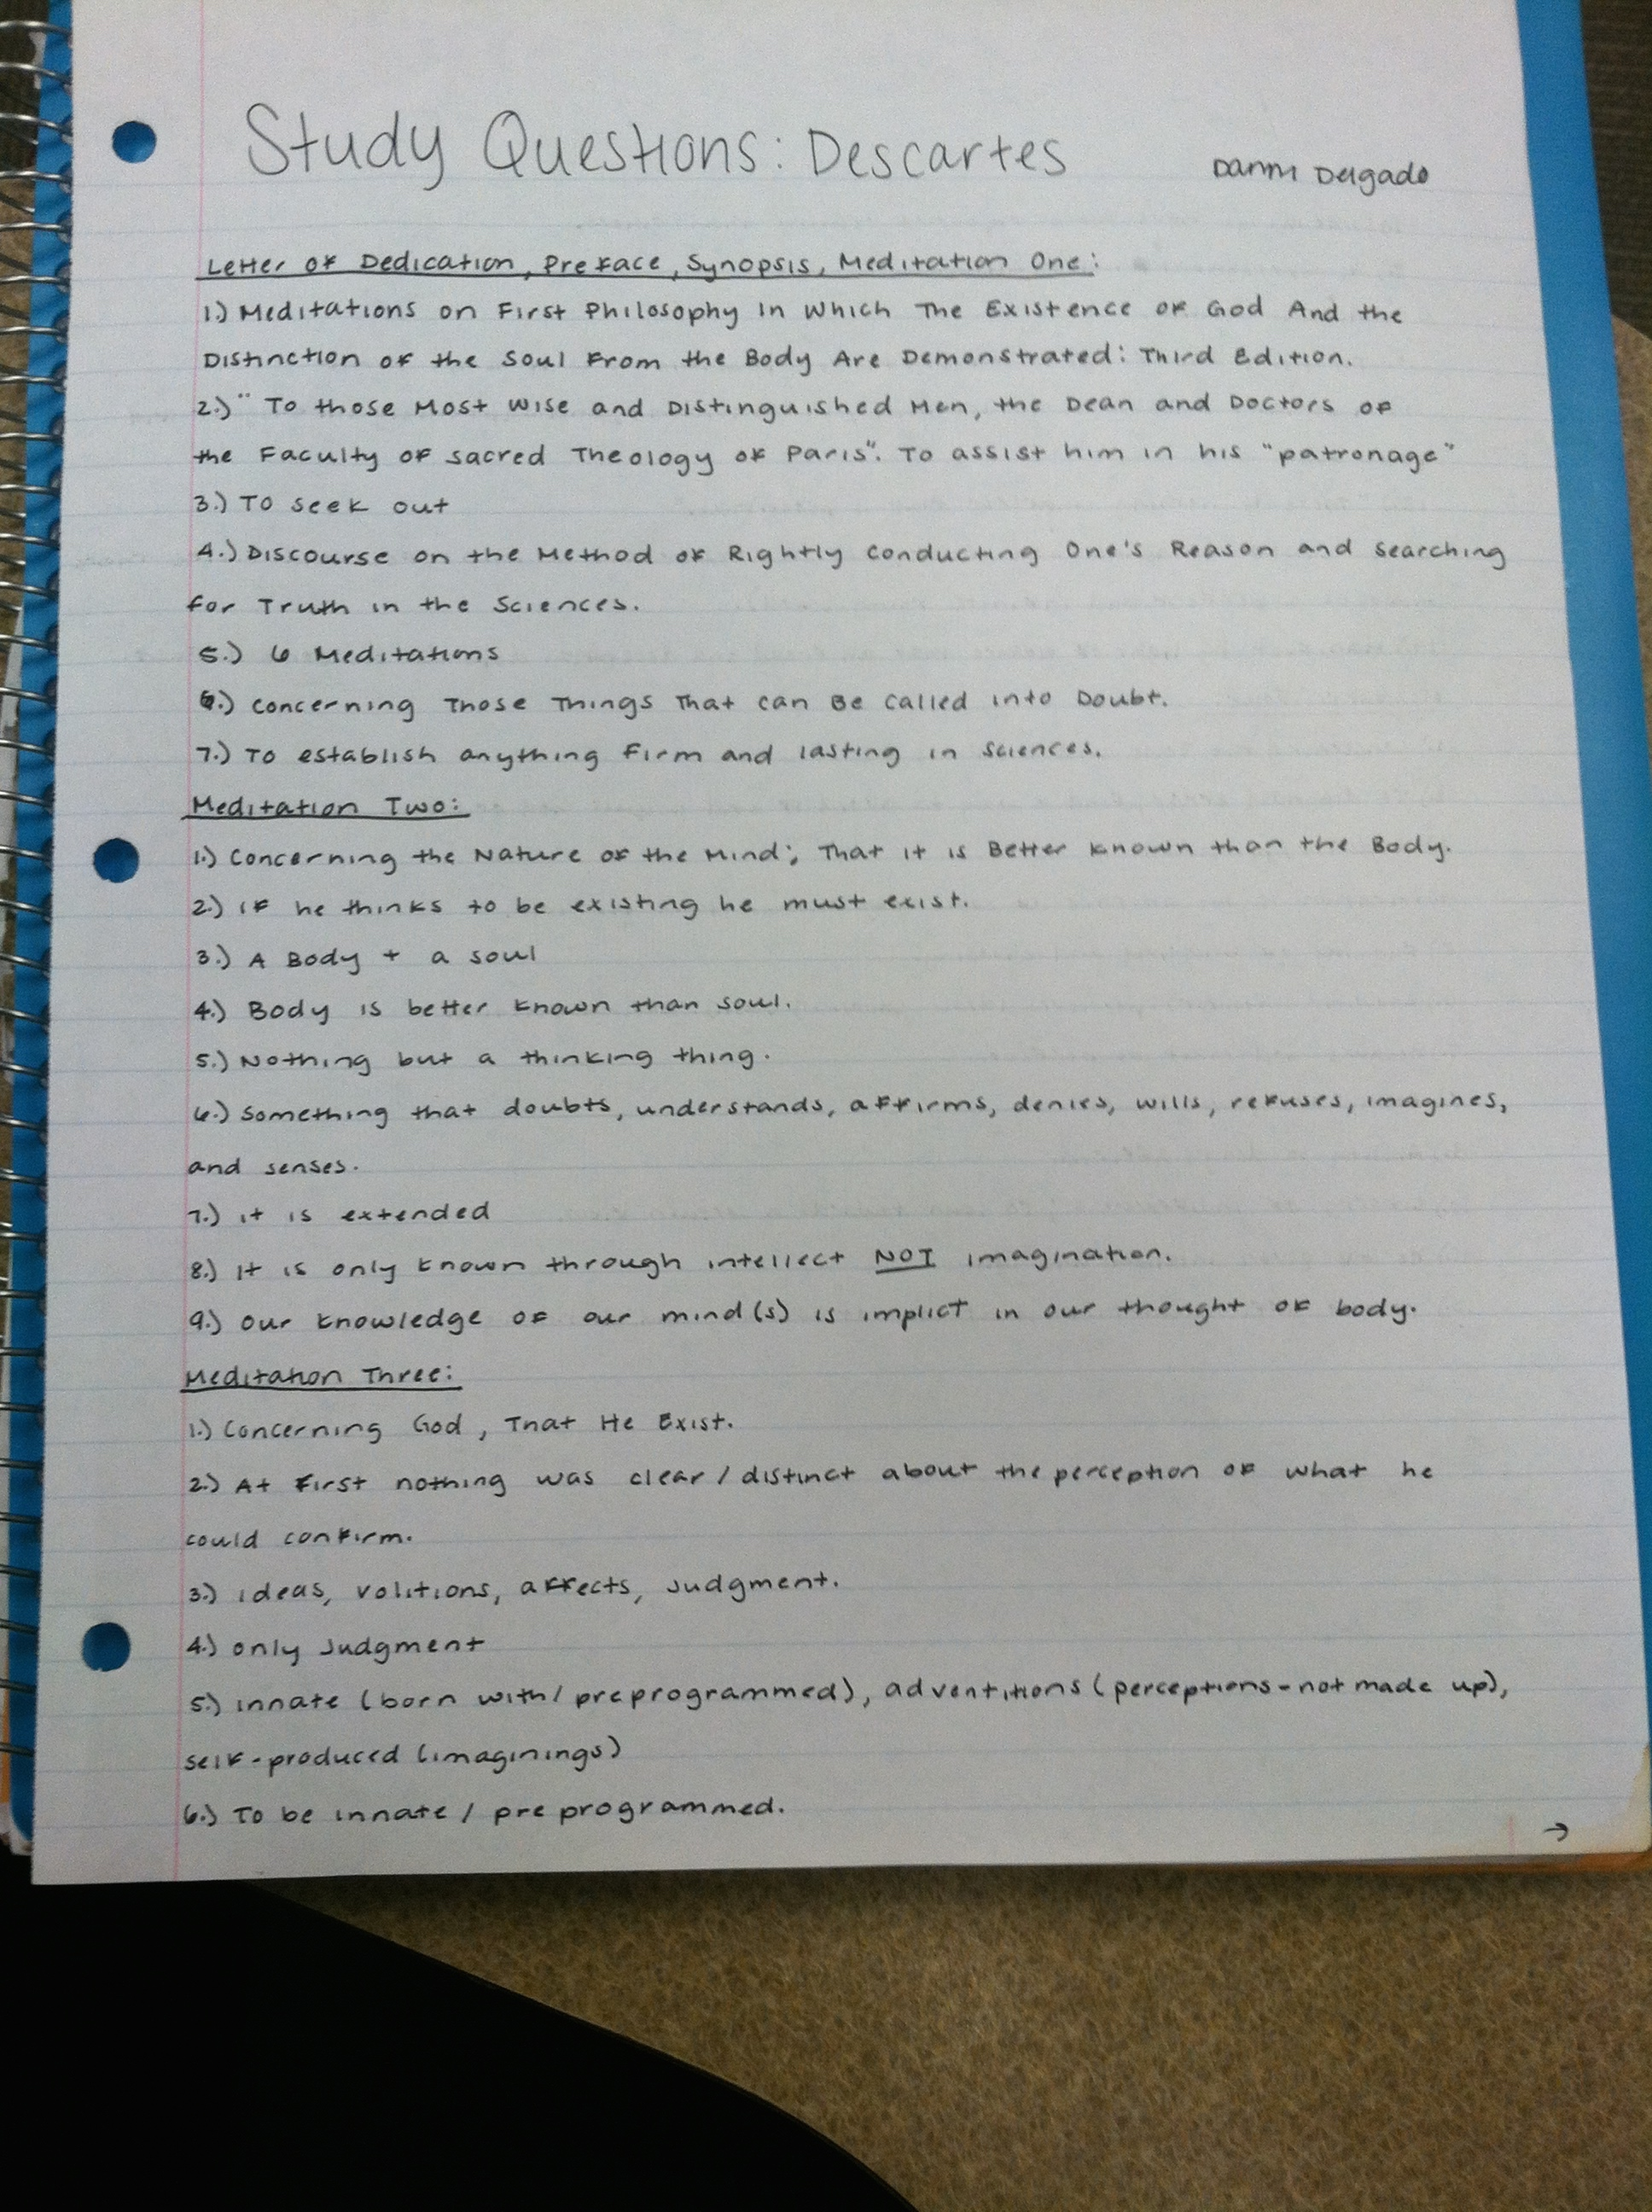 Study Questions: Descartes
Danni Delgado
Letter of Dedication, Preface, Synopsis, Meditation One:
1.) Meditations on First Philosophy In Which The Existence of God And the
Distinction of the Soul From the Body Are Demonstrated: Third Edition.
2.) "To those Most Wise and Distinguished Men, the Dean and Doctors of
the Faculty of Sacred Theology of Paris". To assist him in his "patronage"
3.) To seek out
4.) Discourse on the Method of Rightly Conducting One's Reason and Searching
for Truth in the Sciences.
5.) 6 Meditations
6.) Concerning Those Things That can Be Called into Doubt.
7.) To establish anything firm and lasting in Sciences.
Meditation Two:
1.) Concerning the Nature of the Mind; That it is Better Known than the Body.
2.) If he thinks to be existing he must exist.
3.) A Body + a soul
4.) Body is better known than soul.
5.) Nothing but a thinking thing.
6.) Something that doubts, understands, affirms, denies, wills, refuses, imagines,
and senses.
7.) it is extended
8.) It is only known through intellect NOT imagination.
9.) Our knowledge of our mind(s) is implict in our thought of body.
Meditation Three:
1.) Concerning God, That He Exist.
2.) At first nothing was clear/distinct about the perception of what he
could confirm.
3.) ideas, volitions, affects, judgment.
4.) only Judgment
5.) innate (born with/preprogrammed), adventitions (perceptions-not made up),
self-produced (imaginings)
6.) To be innate/preprogrammed.
→